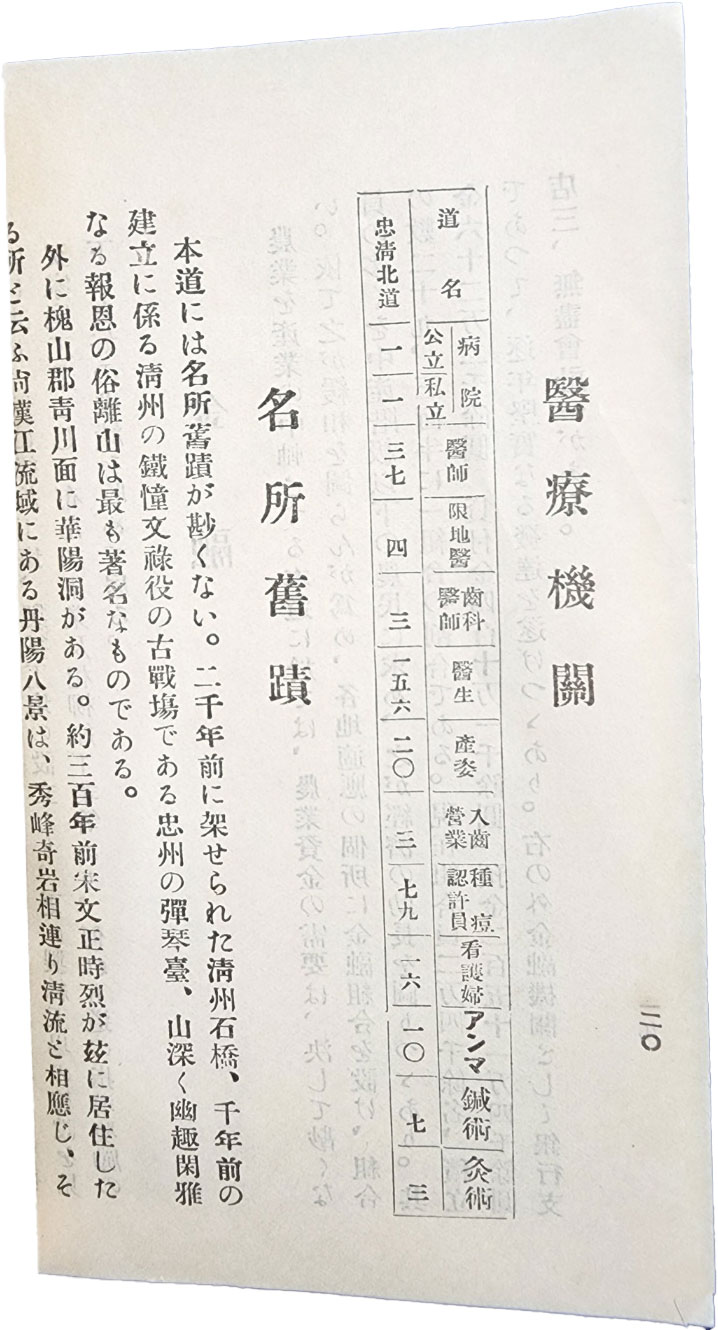 醫療機關
道名 病院 公立 私立 醫師 限地醫 齒科醫師 醫生 產姿 入齒營業 種痘認許員 看護婦 アンマ 鍼術 灸術
忠清北道 一 一 三七 四 三 一五六 二〇 三 七九 一六 一〇 七 三
名所舊蹟
本道には名所舊蹟が尠くない。二千年前に架せられた淸州石橋、千年前の
建立に係る淸州の鐵憧文祿役の古戰塲である忠州の彈琴臺、山深く幽趣閑雅
なる報恩の俗離山は最も著名なものである。
外に槐山郡靑川面に華陽洞がある。約三百年前宋文正時烈が玆に居住した
る所と云ふ尙漢江流域にある丹陽八景は、秀峰奇岩相連り淸流と相應じ、そ
二〇